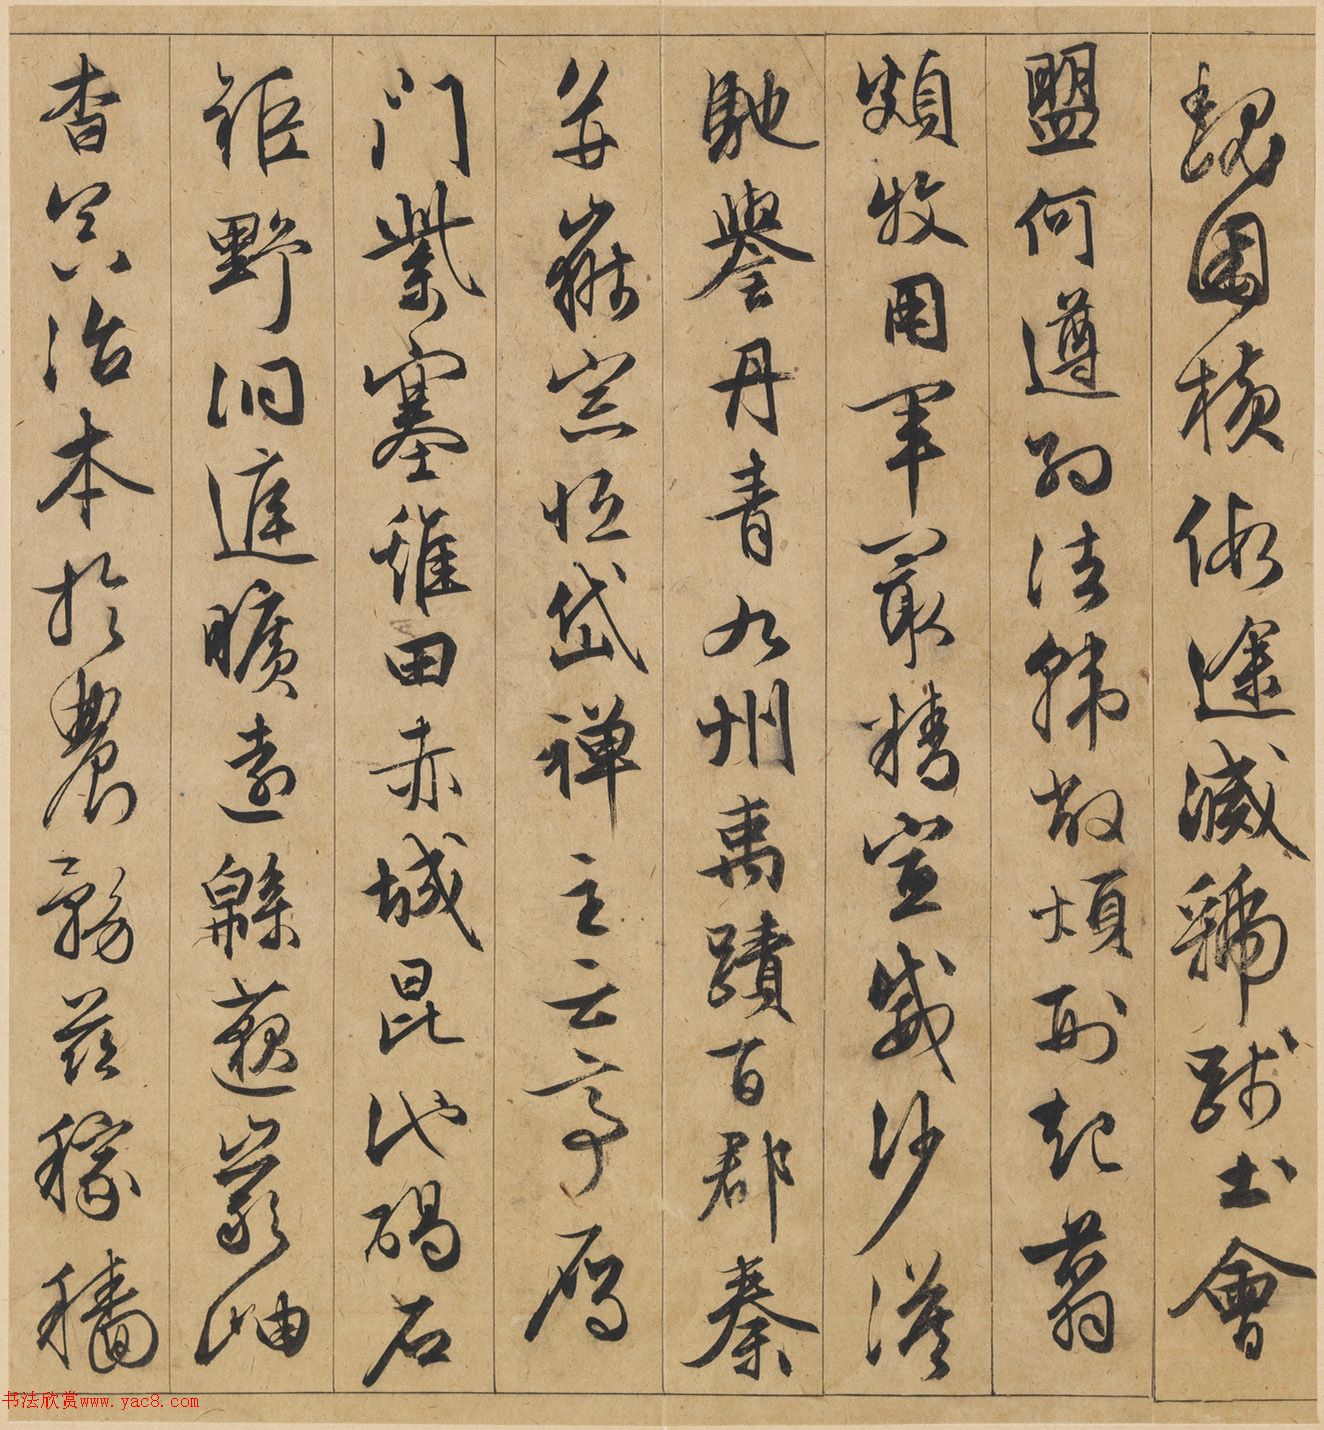 魏困横假途滅虢踐土會
盟何遵約法韓弊煩刑起翦
頗牧用軍最精宣威沙漠
馳譽丹青九州禹蹟百郡秦
并嶽宗恒岱禪主云亭雁
門紫塞雞田赤城昆池碣石
鉅野洞庭曠遠緜邈巖岫
杳冥治本於農務茲稼穡
书法欣赏www.yac8.com